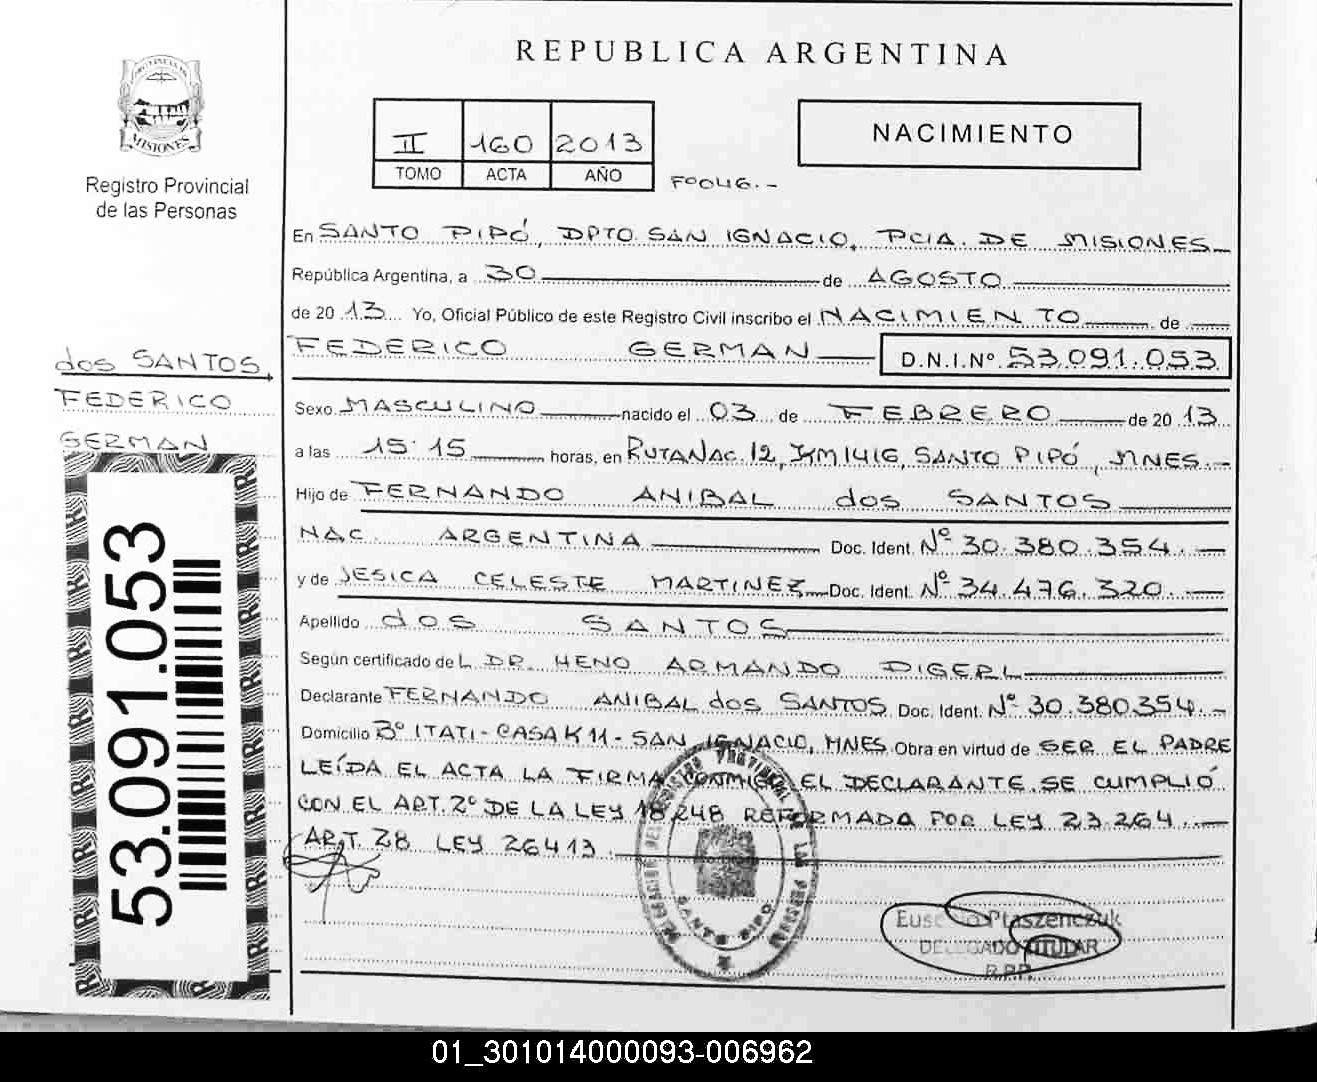 REPUBLICA ARGENTINA
PROVINCIA DE
MISIONES
Registro Provincial
de las Personas
II 160 2013
TOMO ACTA AÑO
Fº046.-
NACIMIENTO
En SANTO PIPÓ, DPTO. SAN IGNACIO, PCIA. DE MISIONES
República Argentina, a 30 de AGOSTO
de 2013 Yo, Oficial Público de este Registro Civil inscribo el NACIMIENTO de
FEDERICO GERMAN D.N.I.Nº 53.091.053
dos SANTOS,
FEDERICO
GERMAN
Sexo MASCULINO nacido el 03 de FEBRERO de 2013
a las 15:15 horas, en RUTA NAC. 12, KM 1416, SANTO PIPÓ, MNES.-
Hijo de FERNANDO ANIBAL dos SANTOS
NAC. ARGENTINA Doc. Ident. Nº 30.380.354.-
y de JESICA CELESTE MARTINEZ Doc. Ident. Nº 34.476.320.-
Apellido dos SANTOS
Según certificado de L DR. HENO ARMANDO DIGERL
Declarante FERNANDO ANIBAL dos SANTOS Doc. Ident. Nº 30.380.354.-
Domicilio Bº ITATI - CASA K 11 - SAN IGNACIO, MNES. Obra en virtud de SER EL PADRE
LEÍDA EL ACTA LA FIRMA CONMIGO EL DECLARANTE. SE CUMPLIÓ
CON EL ART. 2º DE LA LEY 18248 REFORMADA POR LEY 23.264.-
ART. 28 LEY 26413.
53.091.053
SANTO PIPO
Ptaszenczuk
DELEGADO TITULAR
R.P.P.
01_301014000093-006962